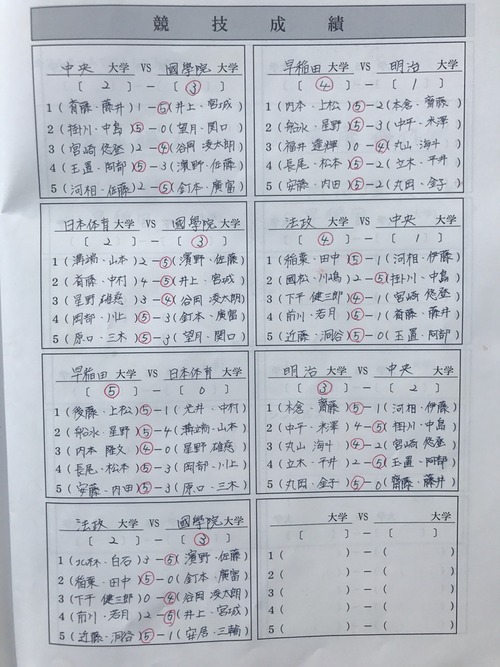 競技成績
中央 大学 VS 國學院 大学
〔 2 〕 － 〔 ③ 〕
1 (齋藤・藤井) 1－⑤ (井上・宮城)
2 (掛川・中島) ⑤－0 (望月・関口)
3 (宮崎 悠登) 2－④ (谷岡 凌太朗)
4 (玉置・阿部) ⑤－3 (濱野・佐藤)
5 (河相・佐藤) 2－⑤ (釘本・廣富)
早稲田 大学 VS 明治 大学
〔 ④ 〕 － 〔 1 〕
1 (内本・上松) ⑤－2 (本倉・齋藤)
2 (船水・星野) ⑤－3 (中平・米澤)
3 (福井 達輝) 0－④ (丸山・海斗)
4 (長尾・松本) ⑤－2 (立木・平井)
5 (安藤・内田) ⑤－2 (丸岡・金子)
日本体育 大学 VS 國學院 大学
〔 2 〕 － 〔 ③ 〕
1 (溝端・山本) 2－⑤ (濱野・佐藤)
2 (首藤・中村) 4－⑤ (井上・宮城)
3 (星野 雄慈) 3－④ (谷岡 凌太朗)
4 (岡部・川上) ⑤－3 (釘本・廣富)
5 (原口・三木) ⑤－3 (望月・関口)
法政 大学 VS 中央 大学
〔 ④ 〕 － 〔 1 〕
1 (稲葉・田中) ⑤－1 (河相・伊藤)
2 (國松・川嶋) 2－⑤ (掛川・中島)
3 (下平 健三郎) ④－1 (宮崎 悠登)
4 (前川・若月) ⑤－1 (首藤・藤井)
5 (近藤・洞谷) ⑤－0 (玉置・阿部)
早稲田 大学 VS 日本体育 大学
〔 ⑤ 〕 － 〔 0 〕
1 (後藤・上松) ⑤－1 (尤井・中村)
2 (船水・星野) ⑤－4 (溝端・山本)
3 (内本 隆文) ④－0 (星野 雄慈)
4 (長尾・松本) ⑤－3 (岡部・川上)
5 (安藤・内田) ⑤－3 (原口・三木)
明治 大学 VS 中央 大学
〔 ③ 〕 － 〔 2 〕
1 (本倉・齋藤) ⑤－1 (河相・伊藤)
2 (中平・米澤) 4－⑤ (掛川・中島)
3 (丸山 海斗) ④－2 (宮崎 悠登)
4 (立木・平井) 2－⑤ (玉置・阿部)
5 (丸岡・金子) ⑤－0 (齋藤・藤井)
法政 大学 VS 國學院 大学
〔 2 〕 － 〔 ③ 〕
1 (北林・白石) 3－⑤ (濱野・佐藤)
2 (稲葉・田中) ⑤－0 (釘本・廣富)
3 (下平 健三郎) 0－④ (谷岡 凌太朗)
4 (前川・若月) 2－⑤ (井上・宮城)
5 (近藤・洞谷) ⑤－1 (安居・三輪)
大学 VS 大学
〔 〕 － 〔 〕
1 ( － )
2 ( － )
3 ( － )
4 ( － )
5 ( － )